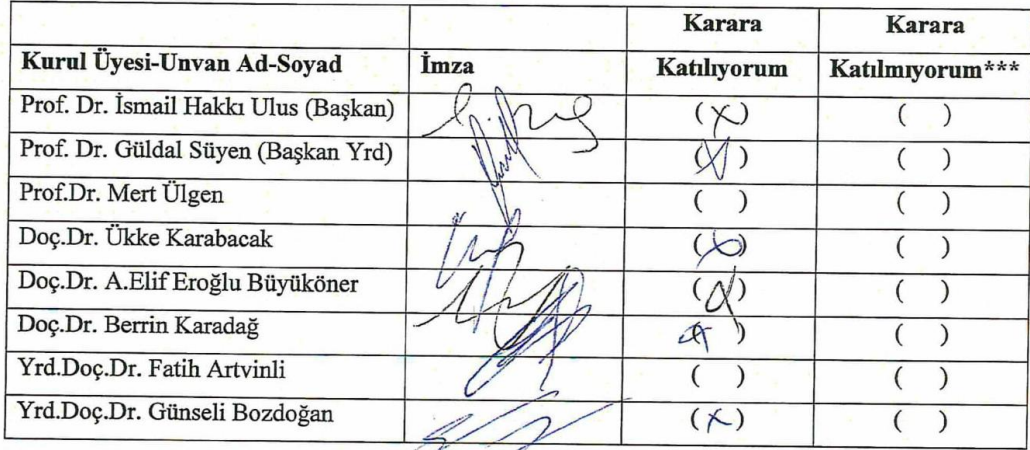 Karara Karara
Kurul Üyesi-Unvan Ad-Soyad İmza Katılıyorum Katılmıyorum***
Prof. Dr. İsmail Hakkı Ulus (Başkan) (x) ( )
Prof. Dr. Güldal Süyen (Başkan Yrd) (x) ( )
Prof.Dr. Mert Ülgen ( ) ( )
Doç.Dr. Ükke Karabacak (x) ( )
Doç.Dr. A.Elif Eroğlu Büyüköner (x) ( )
Doç.Dr. Berrin Karadağ (x) ( )
Yrd.Doç.Dr. Fatih Artvinli ( ) ( )
Yrd.Doç.Dr. Günseli Bozdoğan (x) ( )